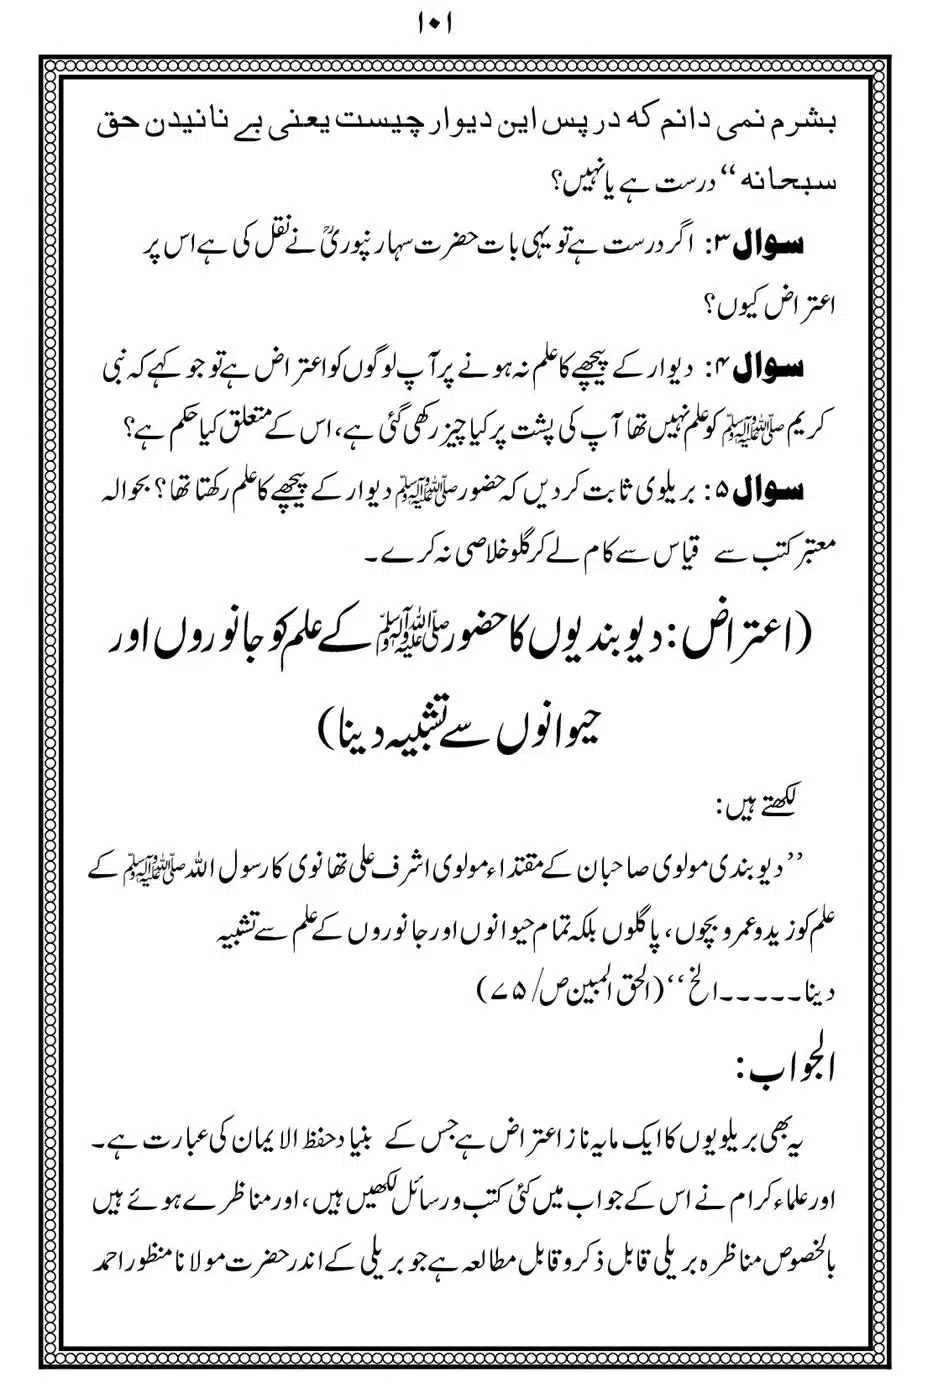 ۱۰۱
بشرم نمی دانم که در پس این دیوار چیست یعنی بے نانیدن حق
سبحانه‘‘ درست ہے یا نہیں؟
سوال ۳: اگر درست ہے تو یہی بات حضرت سہارنپوریؒ نے نقل کی ہے اس پر
اعتراض کیوں؟
سوال ۴: دیوار کے پیچھے کا علم نہ ہونے پر آپ لوگوں کو اعتراض ہے تو جو کہے کہ نبی
کریم ﷺ کو علم نہیں تھا آپ کی پشت پر کیا چیز رکھی گئی ہے، اس کے متعلق کیا حکم ہے؟
سوال ۵: بریلوی ثابت کردیں کہ حضور ﷺ دیوار کے پیچھے کا علم رکھتا تھا؟ بحوالہ
معتبر کتب سے قیاس سے کام لے کر گلو خلاصی نہ کرے۔
(اعتراض: دیوبندیوں کا حضور ﷺ کے علم کو جانوروں اور
حیوانوں سے تشبیہ دینا)
لکھتے ہیں:
’’دیوبندی مولوی صاحبان کے مقتداء مولوی اشرف علی تھانوی کا رسول اللہ ﷺ کے
علم کو زید و عمر و بچوں، پاگلوں بلکہ تمام حیوانوں اور جانوروں کے علم سے تشبیہ
دینا۔۔۔۔۔الخ‘‘ (الحق المبین ص/ ۷۵)
الجواب:
یہ بھی بریلویوں کا ایک مایہ ناز اعتراض ہے جس کے بنیاد حفظ الایمان کی عبارت ہے۔
اور علماء کرام نے اس کے جواب میں کئی کتب و رسائل لکھیں ہیں، اور مناظرے ہوئے ہیں
بالخصوص مناظرہ بریلی قابل ذکر و قابل مطالعہ ہے جو بریلی کے اندر حضرت مولانا منظور احمد